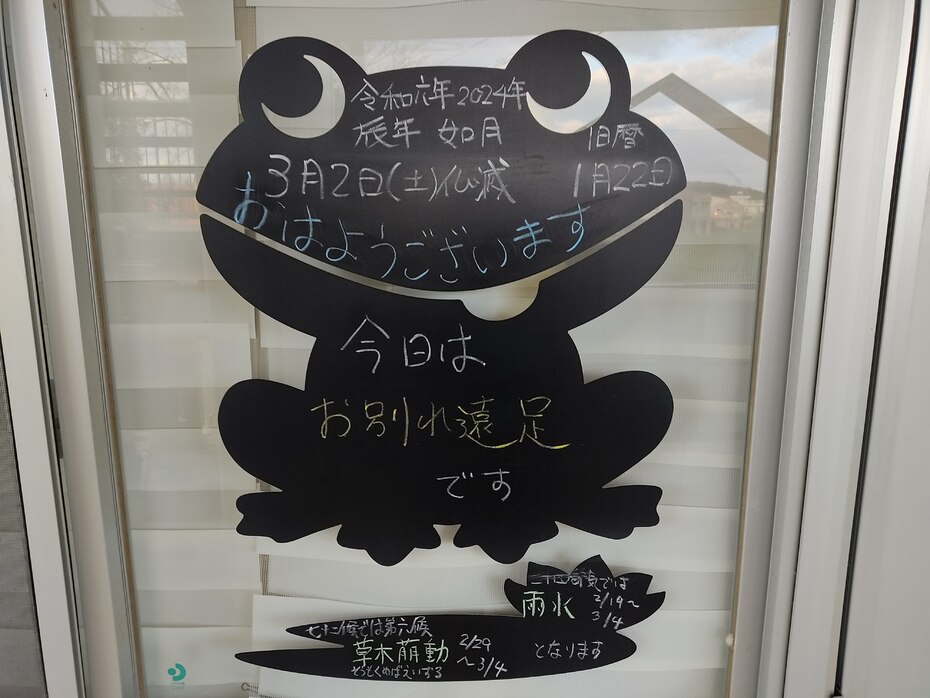 令和六年2024年
辰年 如月
旧暦
3月2日(土)仏滅 1月22日
おはようございます
今日は
お別れ遠足
です
二十四節気では
雨水 2/19〜
3/4
七十二候では第六候
草木萌動 2/29
〜3/4
そうもくめばえいずる
となります